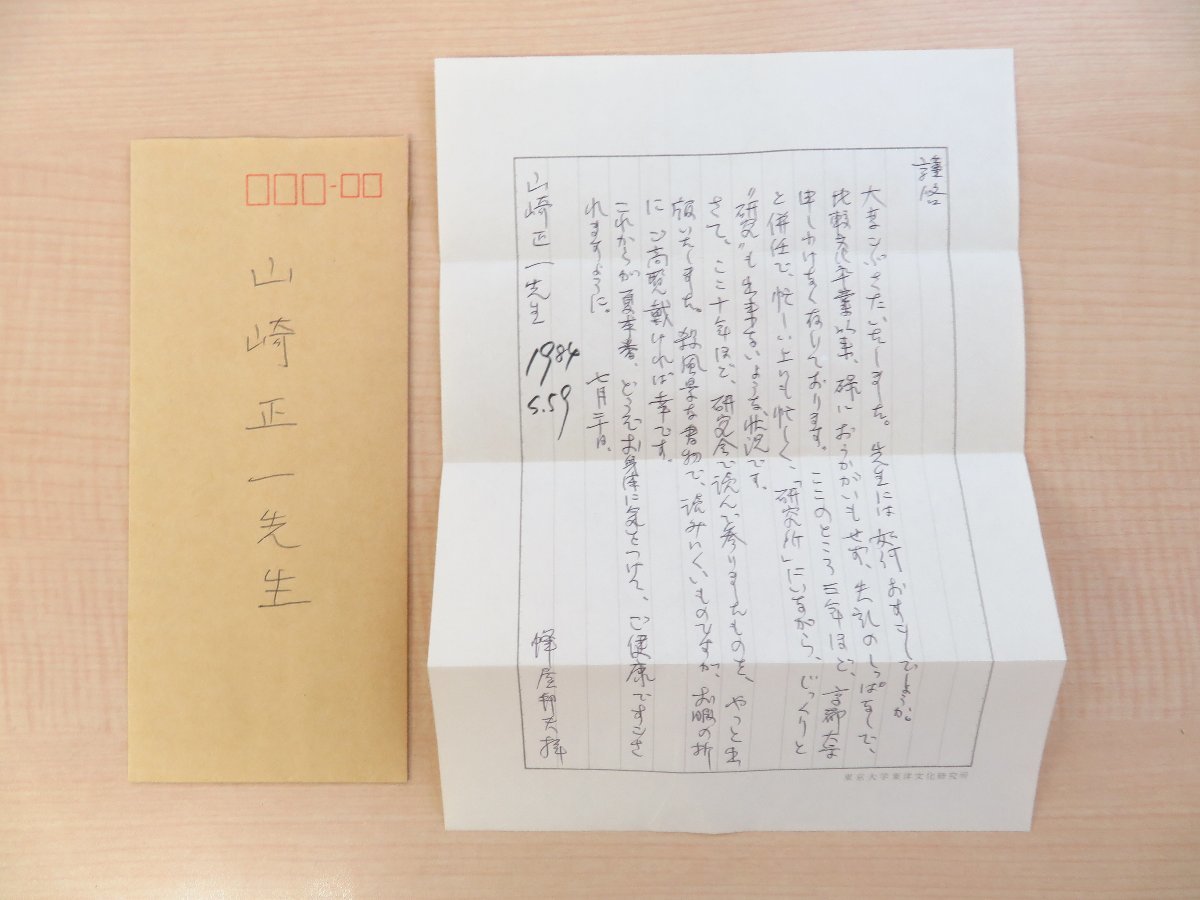 山崎正一先生
謹啓
大変ごぶさたいたしました。先生には如何おすごしでしょうか。
比較文化卒業以来、碌におうかがいもせず、失礼のしっぱなしで、
申しわけなく存じております。ここのところ三年ほど、京都大学
と併任で、忙しい上にも忙しく、「研究所」にいながら、じっくりと
"研究"も出来ないような状況です。
さて、ここ十年ほど、研究会で読んで参りましたものを、やっと出
版いたしました。殺風景な書物で、読みにくいものですが、お暇の折
にご高覧戴ければ幸です。
これからが夏本番、どうぞお身体に気をつけて、ご健康ですごさ
れますように。
七月二十日。
山崎正一先生
1984
S.59
蜂屋邦夫拝
東京大学東洋文化研究所